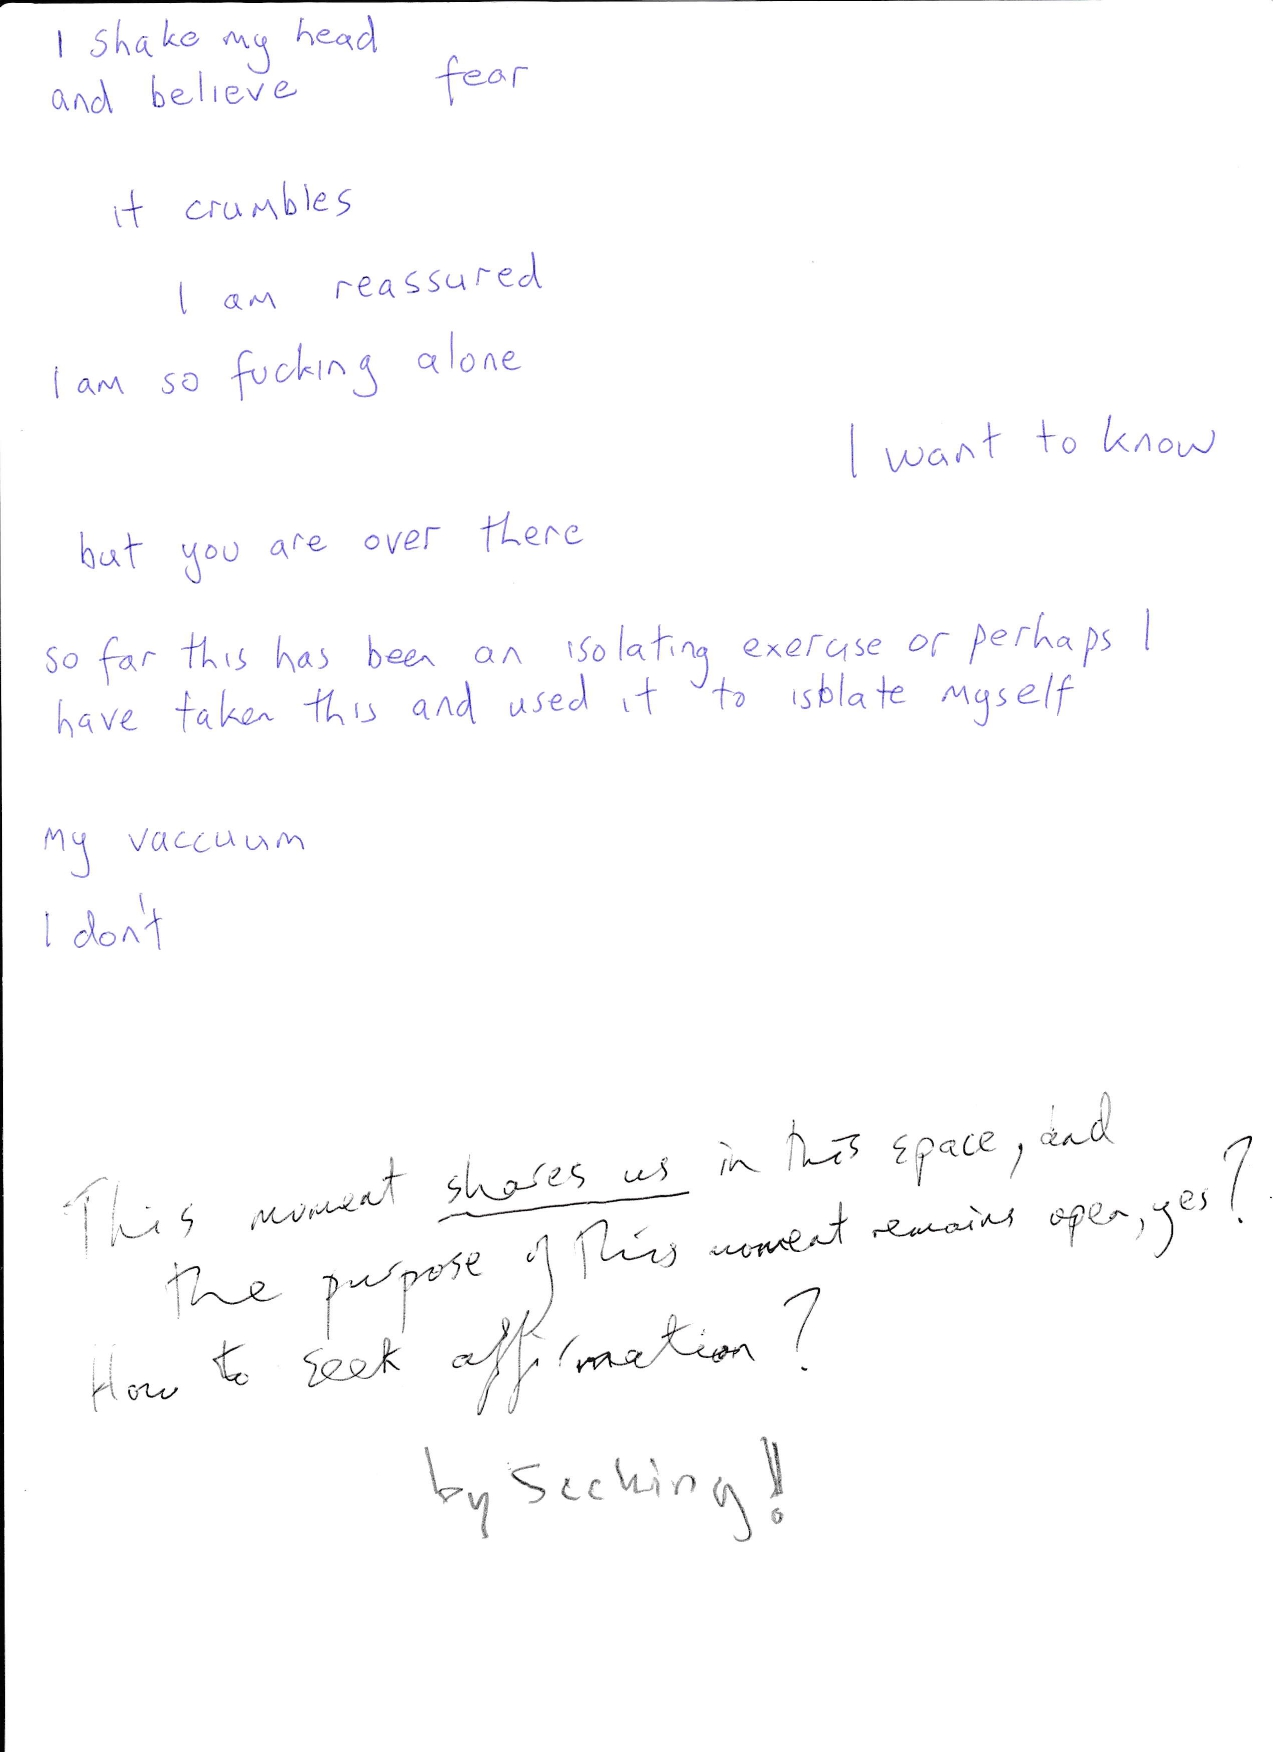 I shake my head
and believe fear
it crumbles
I am reassured
I am so fucking alone
I want to know
but you are over there
so far this has been an isolating exercise or perhaps I
have taken this and used it to isolate myself
my vaccuum
I don't
This moment shares us in this space, and
the purpose of this moment remains open, yes?
How to seek affirmation?
by seeking!